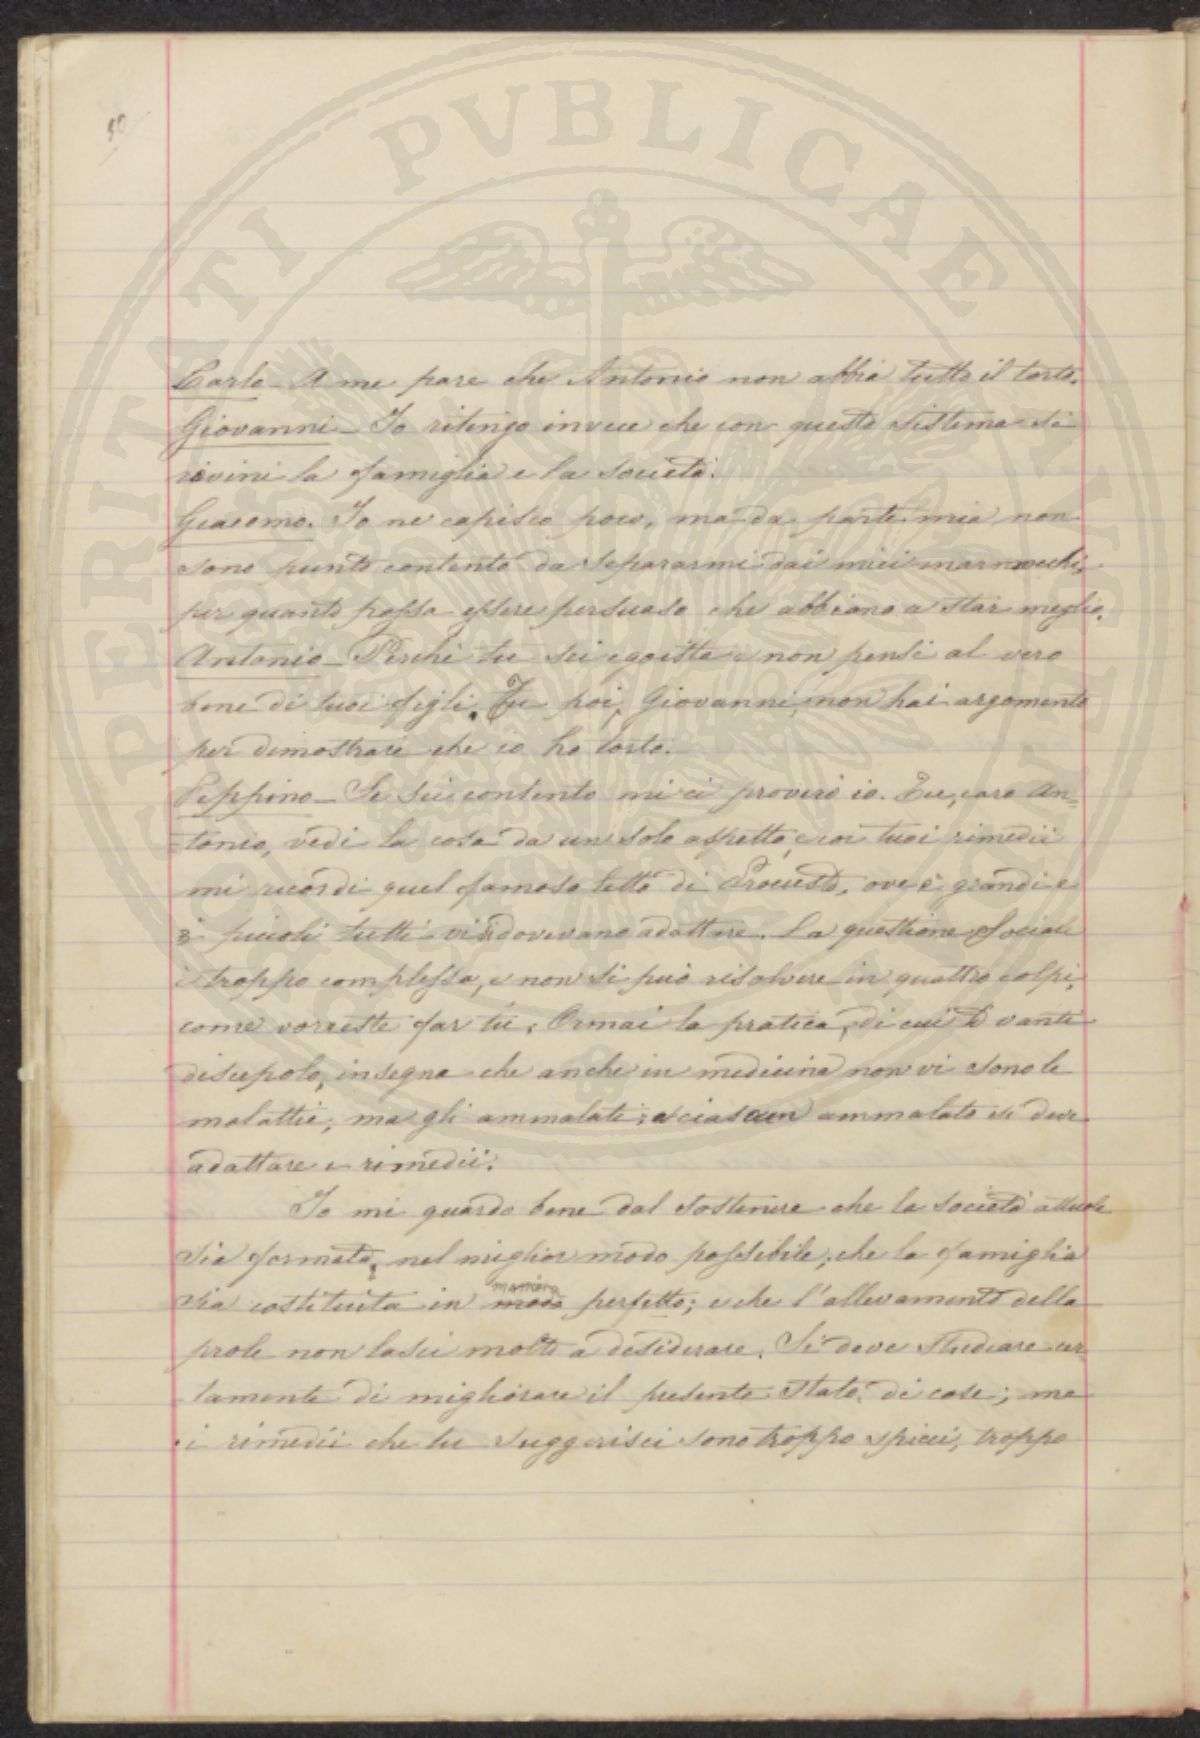 50
Carlo - A me pare che Antonio non abbia tutto il torto.
Giovanni - Io ritengo invece che con questo sistema si
rovini la famiglia e la società.
Giacomo. Io ne capisco poco, ma da parte mia non
sono punto contento da separarmi dai miei marmocchi,
per quanto possa essere persuaso che abbiano a star meglio.
Antonio - Perchè tu sei egoista e non pensi al vero
bene di tuoi figli. Tu poi, Giovanni, non hai argomento
per dimostrare che io ho torto.
Peppino - Se sei contento mi ci proverò io. Tu, caro An=
tonio, vedi la cosa da un solo aspetto, e coi tuoi rimedii
mi ricordi quel famoso letto di Procuste, ove i grandi e
i piccoli tutti vi si dovevano adattare. La questione sociale
è troppo complessa, e non si può risolvere in quattro colpi,
come vorreste far tu. Ormai la pratica, di cui ti vanti
discepolo, insegna che anche in medicina non vi sono le
malattie, ma gli ammalati; a ciascun ammalato si deve
adattare i rimedii.
Io mi guardo bene dal sostenere che la società attuale
sia formata nel miglior modo possibile; che la famiglia
maniera
sia costituita in modo perfetto; e che l'allevamento della
prole non lasci molto a desiderare. Si deve studiare cer
tamente di migliorare il presente stato di cose; ma
i rimedii che tu suggerisci sono troppo spicci, troppo
PROSPERITATI PVBLICAE